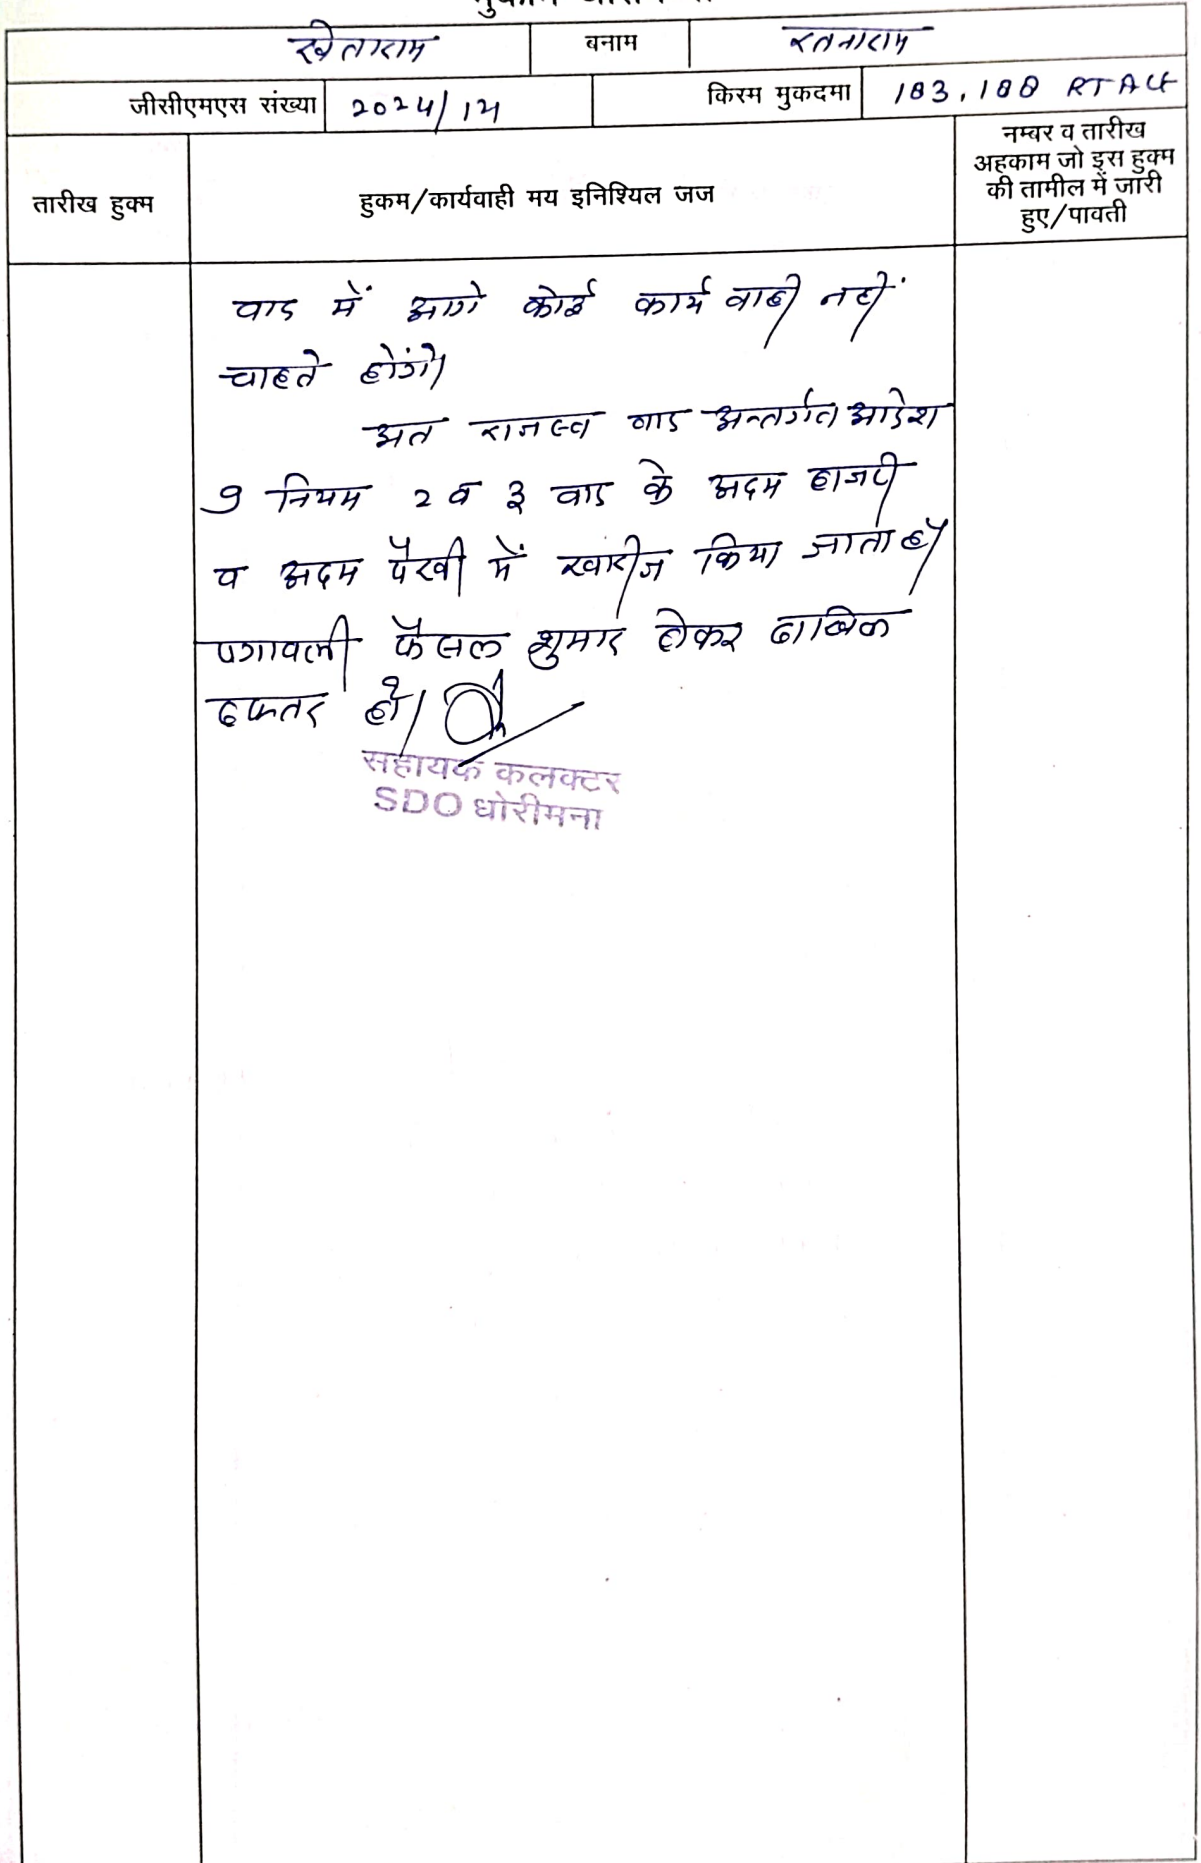 खेताराम बनाम रतनाराम
जीसीएमएस संख्या 2024/14 किस्म मुकदमा 183,188 RTAct
तारीख हुक्म
हुकम/कार्यवाही मय इनिश्यिल जज
नम्बर व तारीख
अहकाम जो इस हुक्म
की तामील में जारी
हुए/पावती
वाद में आगे कोई कार्य वाही नहीं
चाहते होंगे।
अत राजस्व वाद अन्तर्गत आदेश
9 नियम 2 व 3 वाद के अदम हाजरी
व अदम पैरवी में खारीज किया जाता है।
पत्रावली फैसल शुमार होकर दाखिल
दफ्तर हो।
सहायक कलक्टर
SDO धोरीमना